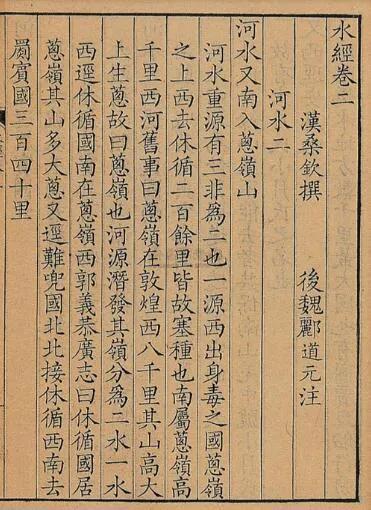 水經卷二
漢桑欽撰 後魏酈道元注
河水二
河水又南入葱嶺山
河水重源有三非為二也一源西出身毒之國葱嶺
之上西去休循二百餘里皆故塞種也南屬葱嶺高
千里西河舊事曰葱嶺在敦煌西八千里其山高大
上生葱故曰葱嶺也河源潛發其嶺分為二水一水
西逕休循國南在葱嶺西郭義恭廣志曰休循國居
葱嶺其山多大葱又逕難兜國北北接休循西南去
罽賓國三百四十里